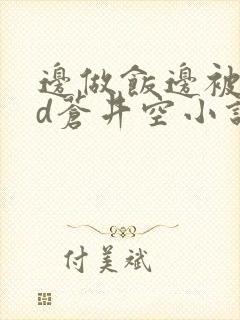 邊做飯邊被
d蒼井空小說
付美斌